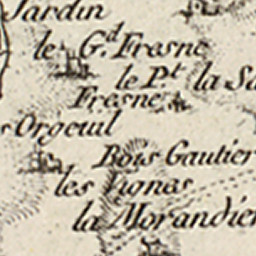 Jardin
le G.d Fresne
le P.t la Sa
Fresne
s Orgeuil
Bois Gautier
les Vignes
la Morandier